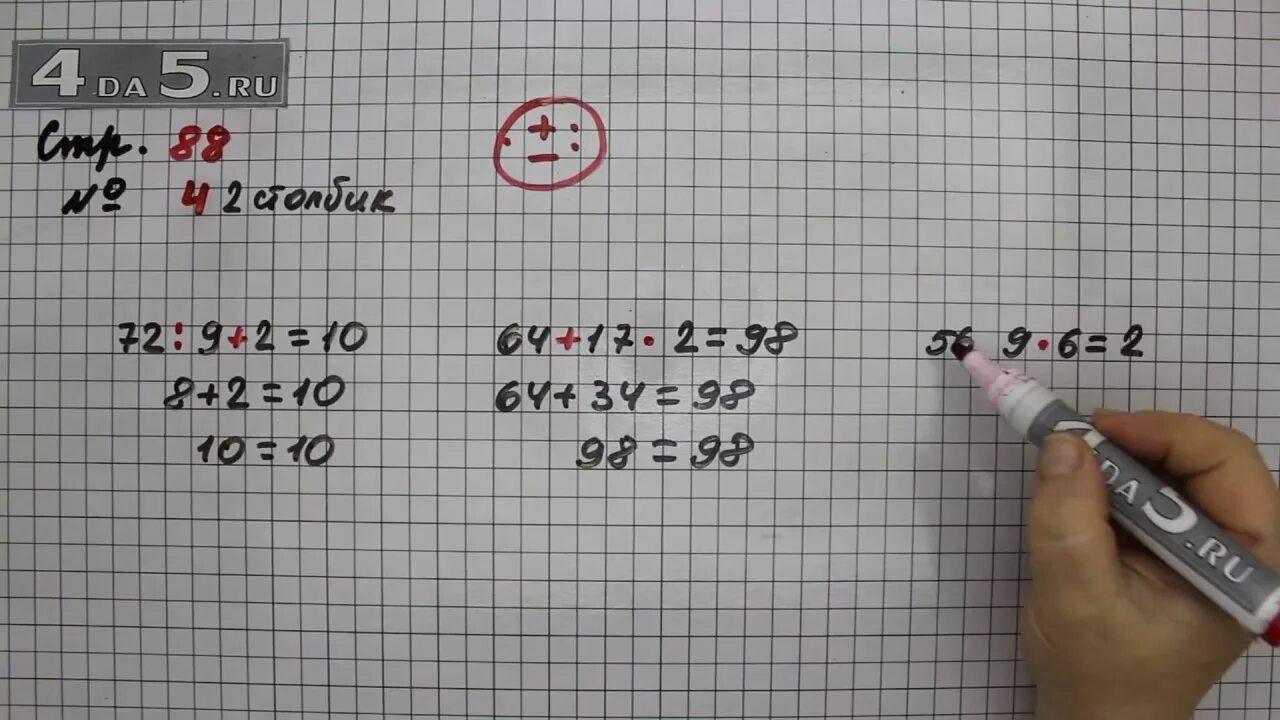 4DA5.RU
Стр. 88
№ 4 2 столбик
· + :
−
72 : 9 + 2 = 10
8 + 2 = 10
10 = 10
64 + 17 · 2 = 98
64 + 34 = 98
98 = 98
56 9 · 6 = 2
DA5.RU